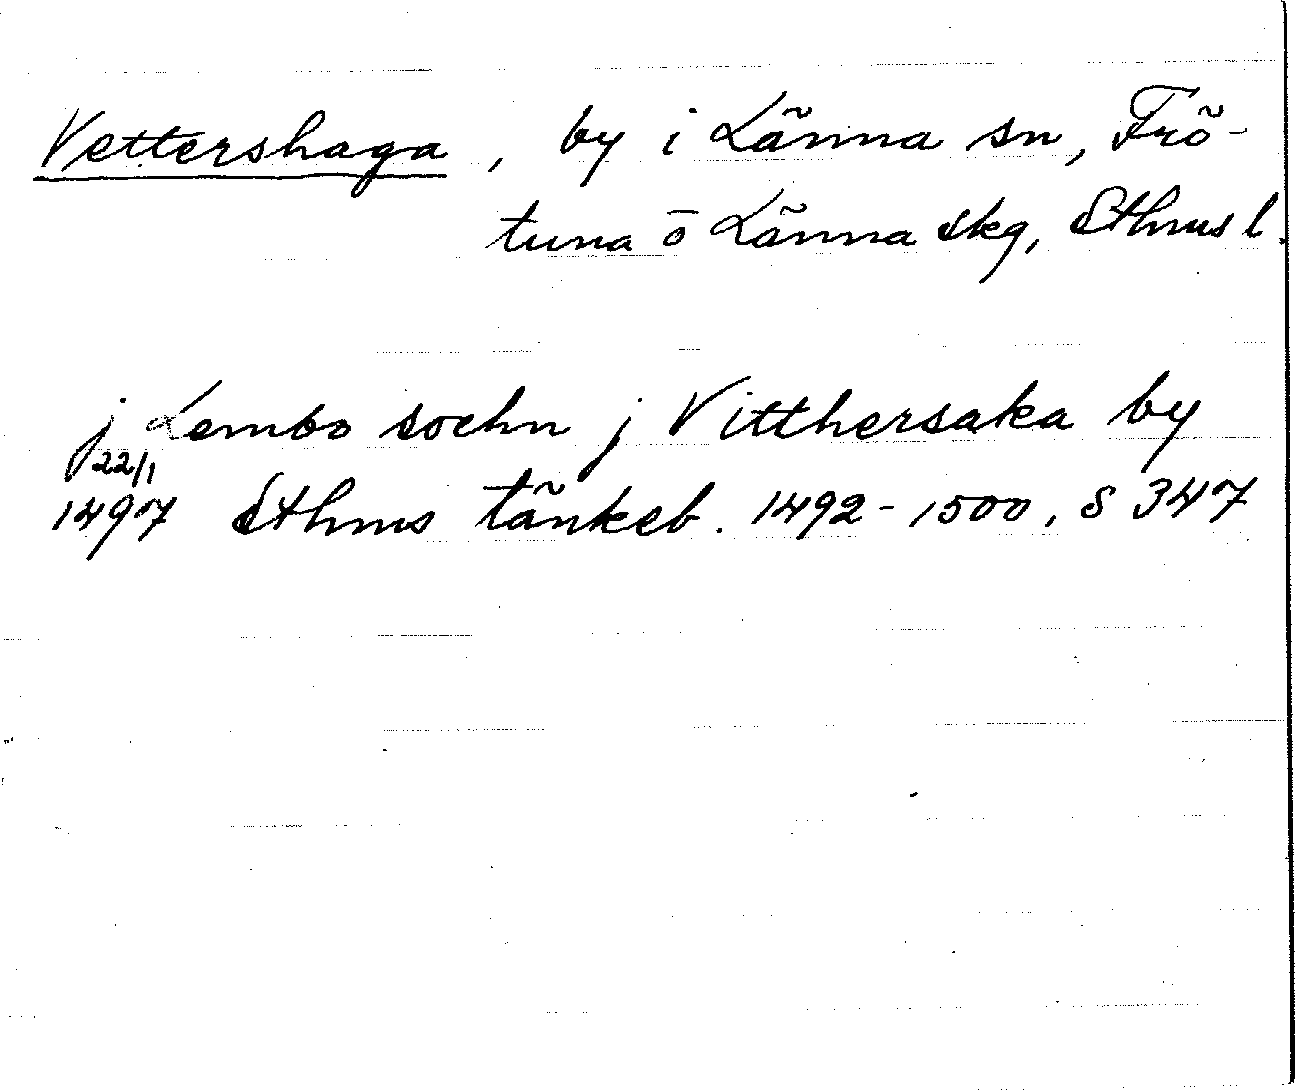 Vettershaga, by i Länna sn, Frö-
tuna ō Länna skg, Sthms l.
j Lembo sochn j Vitthersaka by
22/1
1497 Sthms tänkeb. 1492-1500, s 347